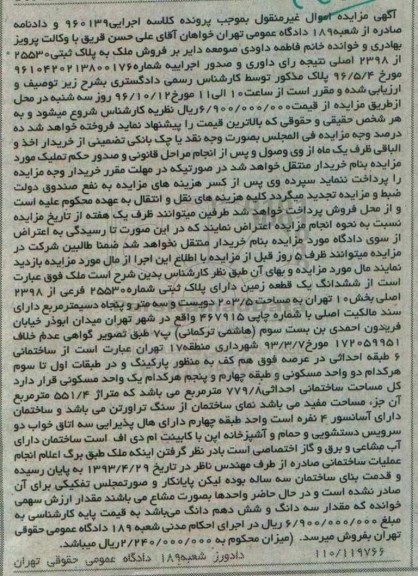 آگهی مزایده اموال غیرمنقول بموجب پرونده کلاسه اجرایی۹۶۰۱۳۹ و دادنامه
صادره از شعبه۱۸۹ دادگاه عمومی تهران خواهان آقای علی حسن قریق با وکالت پرویز
بهادری و خوانده خانم فاطمه داودی صومعه دایر بر فروش ملک به پلاک ثبتی۲۵۵۳۰
از ۲۳۹۸ اصلی نتیجه رای داوری و صدور اجراییه شماره۹۶۱۰۴۲۰۲۱۳۸۰۰۱۷۶
مورخ ۹۶/۵/۴ پلاک مذکور توسط کارشناس رسمی دادگستری بشرح زیر توصیف و
ارزیابی شده و مقرر است از ساعت۱۰ الی۱۱ مورخ۹۶/۱۰/۱۲ روز سه شنبه در محل
ازطریق مزایده از قیمت۶/۹۰۰/۰۰۰/۰۰۰ریال نظریه کارشناس شروع میشود و به
هر شخص حقیقی و حقوقی که بالاترین قیمت را پیشنهاد نماید فروخته خواهد شد ده
درصد وجه مزایده فی المجلس بصورت وجه نقد یا چک بانکی تضمینی از خریدار اخذ و
الباقی ظرف یک ماه از وی وصول و پس از انجام مراحل قانونی و صدور حکم تملیک مورد
مزایده بنام خریدار منتقل خواهد شد در صورتیکه در مهلت مقرر خریدار وجه مزایده
را پرداخت ننماید سپرده وی پس از کسر هزینه های مزایده به نفع صندوق دولت
ضبط و مزایده تجدید میگردد کلیه هزینه های نقل و انتقال به عهده محکوم علیه است
و از محل فروش پرداخت خواهد شد طرفین میتوانند ظرف یک هفته از تاریخ مزایده
نسبت به نحوه انجام مزایده اعتراض نمایند که در این صورت تا رسیدگی به اعتراض
از سوی دادگاه مورد مزایده بنام خریدار منتقل نخواهد شد ضمنا طالبین شرکت در
مزایده میتوانند ظرف ۵ روز قبل از مزایده با اطلاع این اجرا از مال مورد مزایده بازدید
نمایند مال مورد مزایده و بهای آن طبق نظر کارشناس بدین شرح است ملک فوق عبارت
است از ششدانگ یک قطعه زمین دارای پلاک ثبتی شماره۲۵۵۳۰ فرعی از ۲۳۹۸
اصلی بخش۱۰ تهران به مساحت ۲۰۳/۵ دویست و سه متر و پنجاه دسیمترمربع دارای
سند مالکیت اصلی با شماره چاپی ۴۶۷۹۱۵ واقع در شهر تهران میدان ابوذر خیابان
فریدون احمدی بن بست سوم (هاشمی ترکمانی) پ۷ طبق تصویر گواهی عدم خلاف
۱۷۲۰۵۹۹۵۱ مورخ۹۳/۳/۷ شهرداری منطقه۱۷ تهران عبارت است از ساختمانی
۶ طبقه احداثی در عرصه فوق هم کف به منظور پارکینگ و در طبقات اول تا سوم
هرکدام دو واحد مسکونی و طبقه چهارم و پنجم هرکدام یک واحد مسکونی قرار دارد
کل مساحت ساختمانی احداثی۷۷۹/۸ مترمربع می باشد که متراژ ۵۵۱/۴ مترمربع
آن جزء مساحت مفید می باشد نمای ساختمان از سنگ تراورتن می باشد و ساختمان
دارای آسانسور ۴ نفره است واحد طبقه چهارم دارای هال پذیرایی سه اتاق خواب دو
سرویس دستشویی و حمام و آشپزخانه اپن با کابینت ام دی اف است ساختمان دارای
آب مشاعی و برق و گاز اختصاصی است بادر نظر گرفتن اینکه ملک طبق برگ اعلام انجام
عملیات ساختمانی صادره از طرف مهندس ناظر در تاریخ ۱۳۹۳/۴/۲۹ به پایان رسیده
و قدمت بنای ساختمان سه ساله بوده لیکن پایانکار و صورتمجلس تفکیکی برای آن
صادر نشده است و در حال حاضر واحدها بصورت مشاع می باشند مقدار ارزش سهمی
خوانده که مقدار سه دانگ و شش دهم دانگ می‌باشد به قیمت پایه کارشناسی به
مبلغ ۶/۹۰۰/۰۰۰/۰۰۰ ریال در اجرای احکام مدنی شعبه ۱۸۹ دادگاه عمومی حقوقی
تهران بفروش میرسد. (میزان محکوم به ۲/۲۴۰/۰۰۰/۰۰۰ریال میباشد.
۱۱۰/۱۱۹۷۶۶ دادورز شعبه۱۸۹ دادگاه عمومی حقوقی تهران